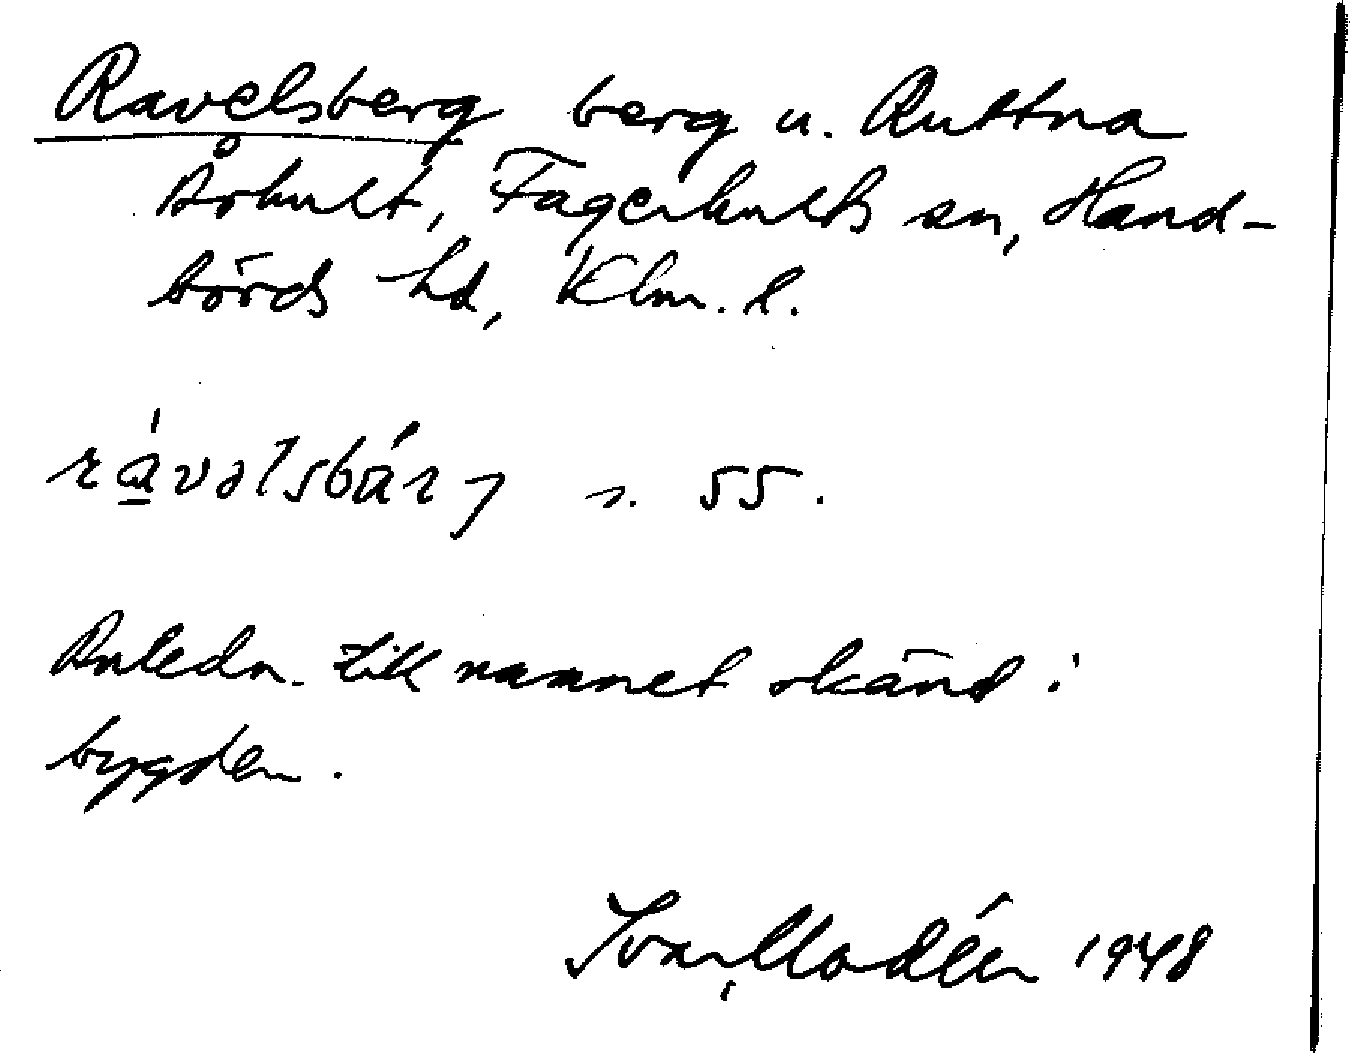 Ravelsberg berg u. Ruttna
Århult, Fagerhults sn, Hand-
börds hd, Klm. l.
rávəlsbárj s. 55.
Anledn. till namnet okänd i
bygden.
Ivar Modéer 1948